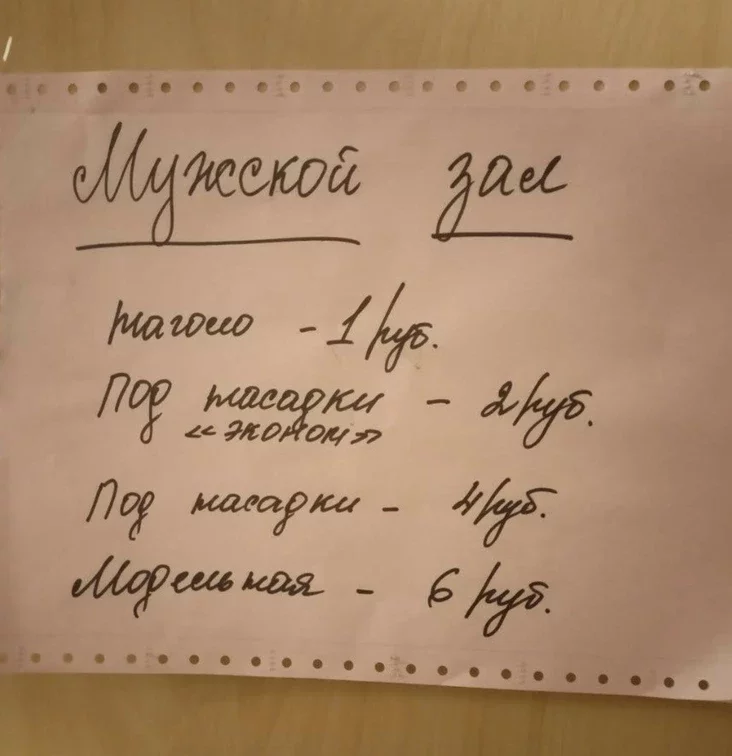 Мужской зал
наголо - 1 руб.
Под насадки - 2 руб.
«эконом»
Под насадки - 4 руб.
Модельная - 6 руб.